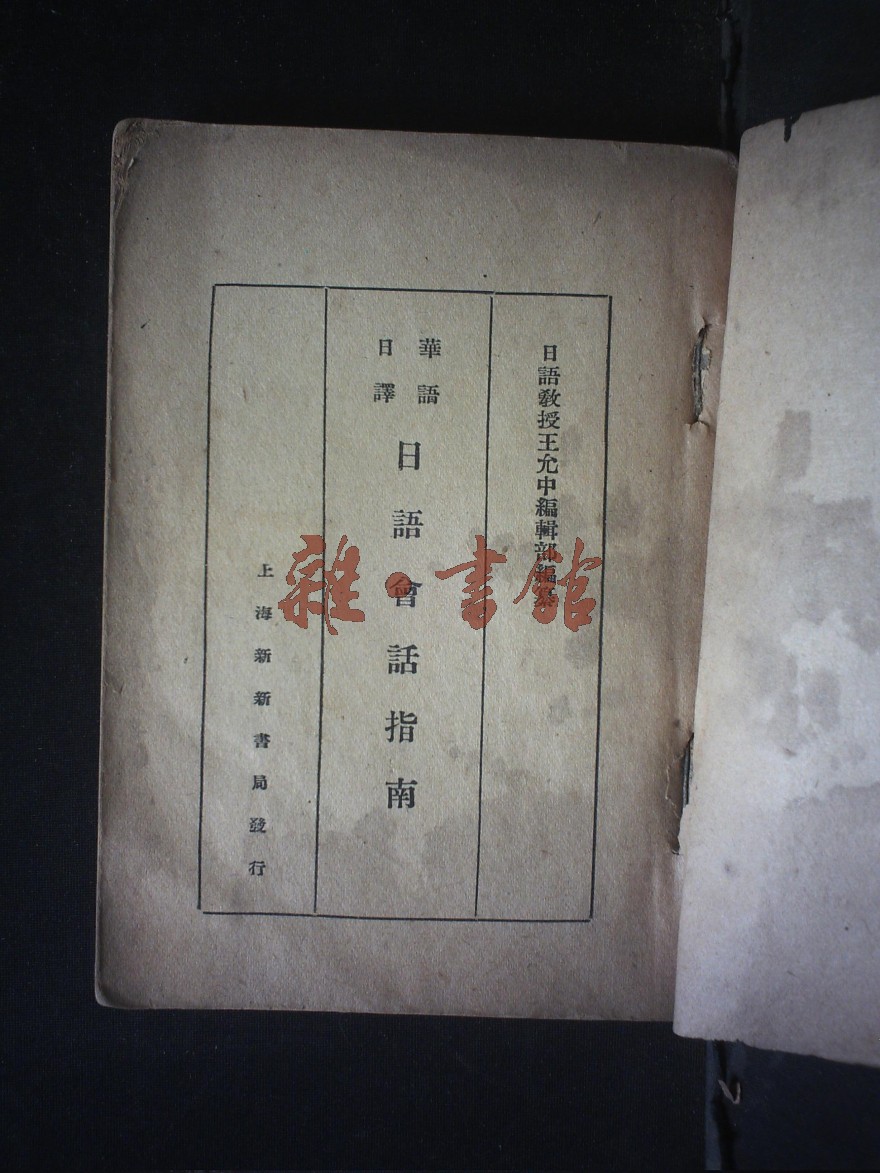 日語教授王允中編輯部編纂
華語
日譯
日語會話指南
上海新新書局發行
雜·書館